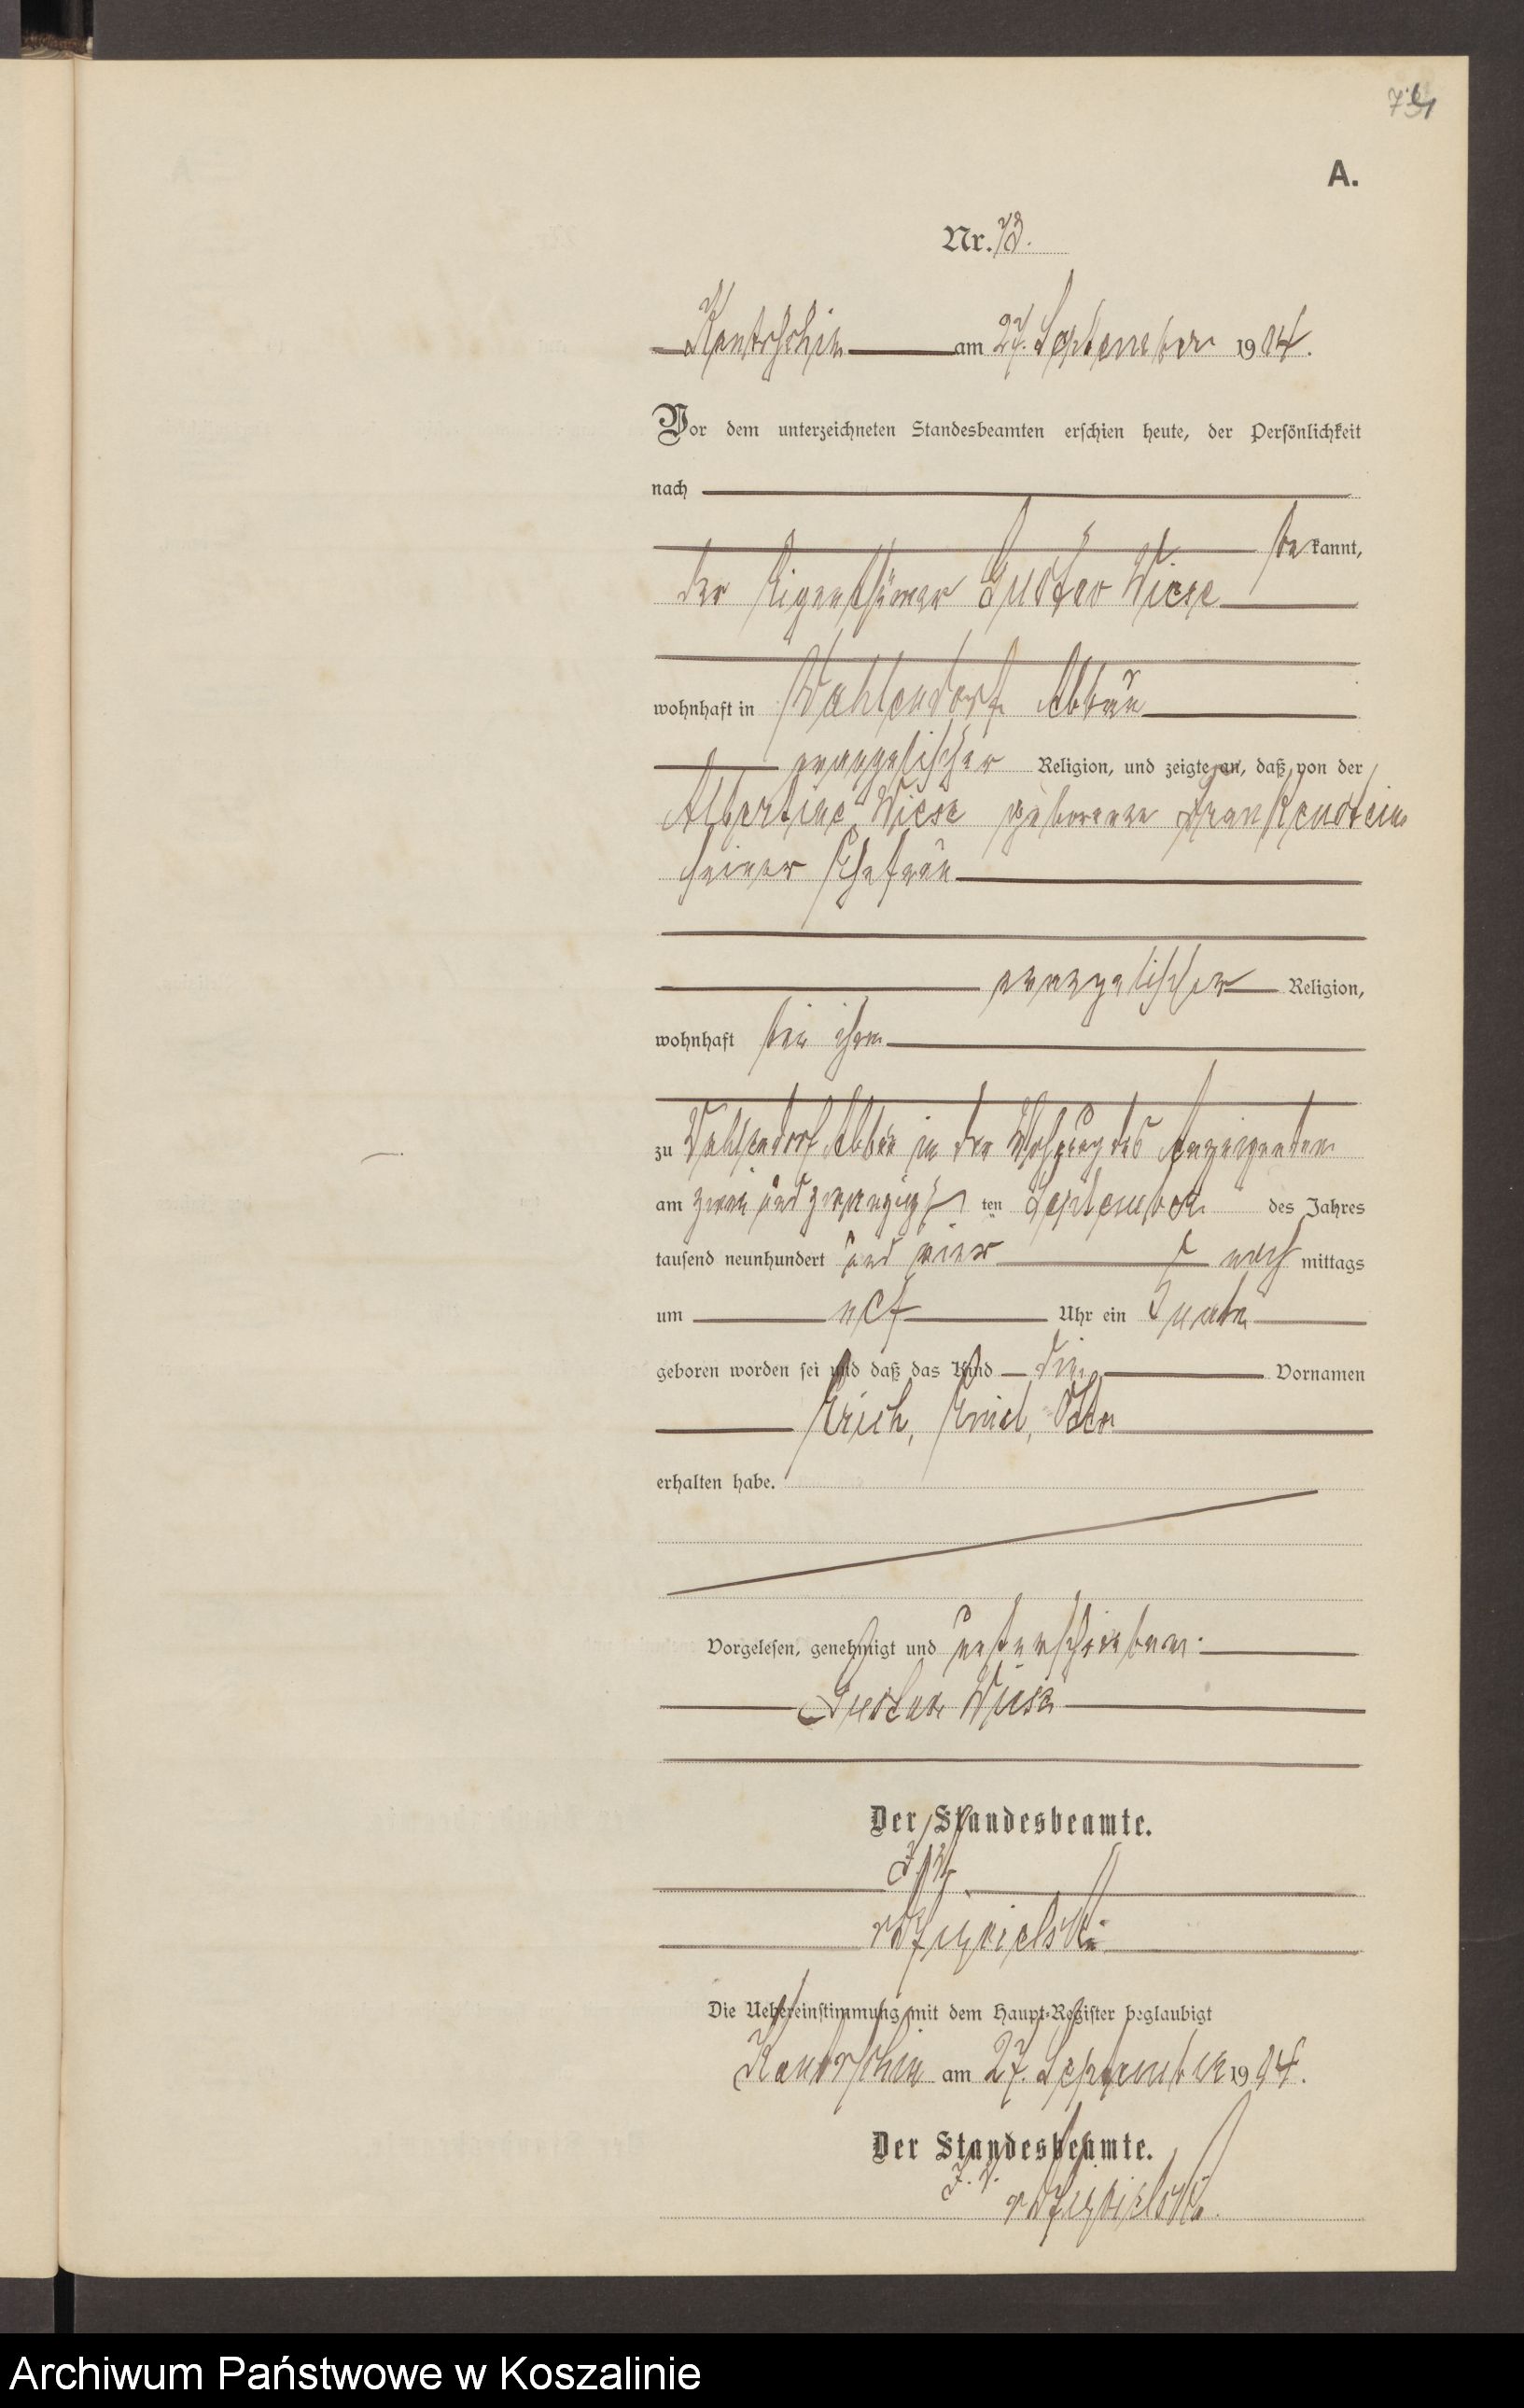 A.
Nr. 73.
Kantrschin am 27. September 1904.
Vor dem unterzeichneten Standesbeamten erschien heute, der Persönlichkeit
nach
be kannt,
der Eigenthümer Gustav Wiese
wohnhaft in Wahlendorf Abbau
evangelischer Religion, und zeigte an, daß von der
Albertine Wiese geborene Frankenstein
seiner Ehefrau
evangelischer Religion,
wohnhaft bei ihm
zu Wahlendorf Abbau in der Wohnung des Anzeigenden
am zwei und zwanzigsten ten September des Jahres
tausend neunhundert und vier nach mittags
um elf Uhr ein Knabe
geboren worden sei und daß das Kind die Vornamen
Erich, Emil, Otto
erhalten habe.
Vorgelesen, genehmigt und unterschrieben.
Gustav Wiese
Der Standesbeamte.
J. V.
Die Uebereinstimmung mit dem Haupt-Register beglaubigt
Kantrschin am 27. September 1904.
Der Standesbeamte.
J. V.
Archiwum Państwowe w Koszalinie